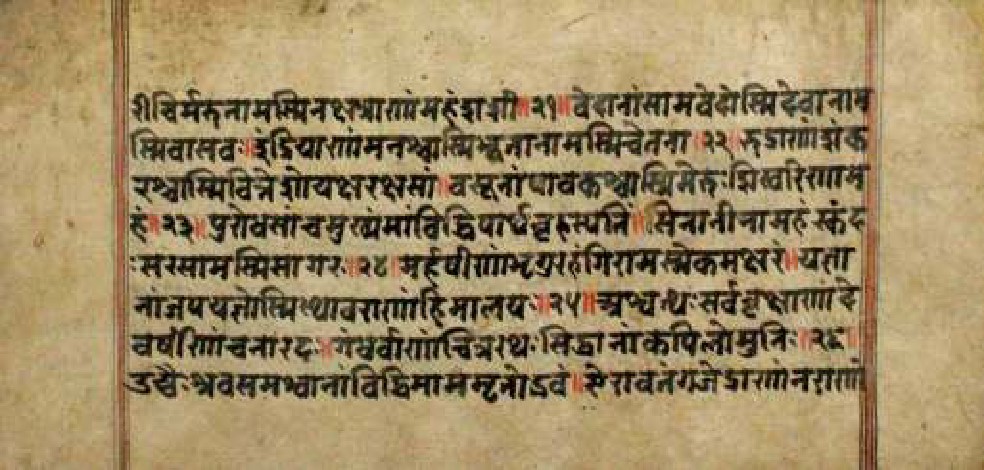 रीचिर्मरुतामस्मिनक्षत्राणांमहंशशी॥२१॥वेदानांसामवेदोस्मिदेवानाम
स्मिवासवः॥इंद्रियाणांमनश्चास्मिभूतानामस्मिचेतना॥२२॥रुद्राणांशंक
रश्चास्मिवित्तेशोयक्षरक्षसां॥वसूनांपावकश्चास्मिमेरुःशिखरिणाम
हं॥२३॥पुरोधसांचमुख्यंमांविद्धिपार्थबृहस्पतिं॥सेनानीनामहंस्कंद
ःसरसामस्मिसागरः॥२४॥महर्षीणांभृगुरहंगिरामस्म्येकमक्षरं॥यज्ञा
नांजपयज्ञोस्मिस्थावराणांहिमालयः॥२५॥अश्वत्थःसर्ववृक्षाणांदे
वर्षीणांचनारदः॥गंधर्वाणांचित्ररथःसिद्धानांकपिलोमुनिः॥२६॥
उच्चैःश्रवसमश्वानांविद्धिमाममृतोद्भवं॥ऐरावतंगजेंद्राणांनराणां